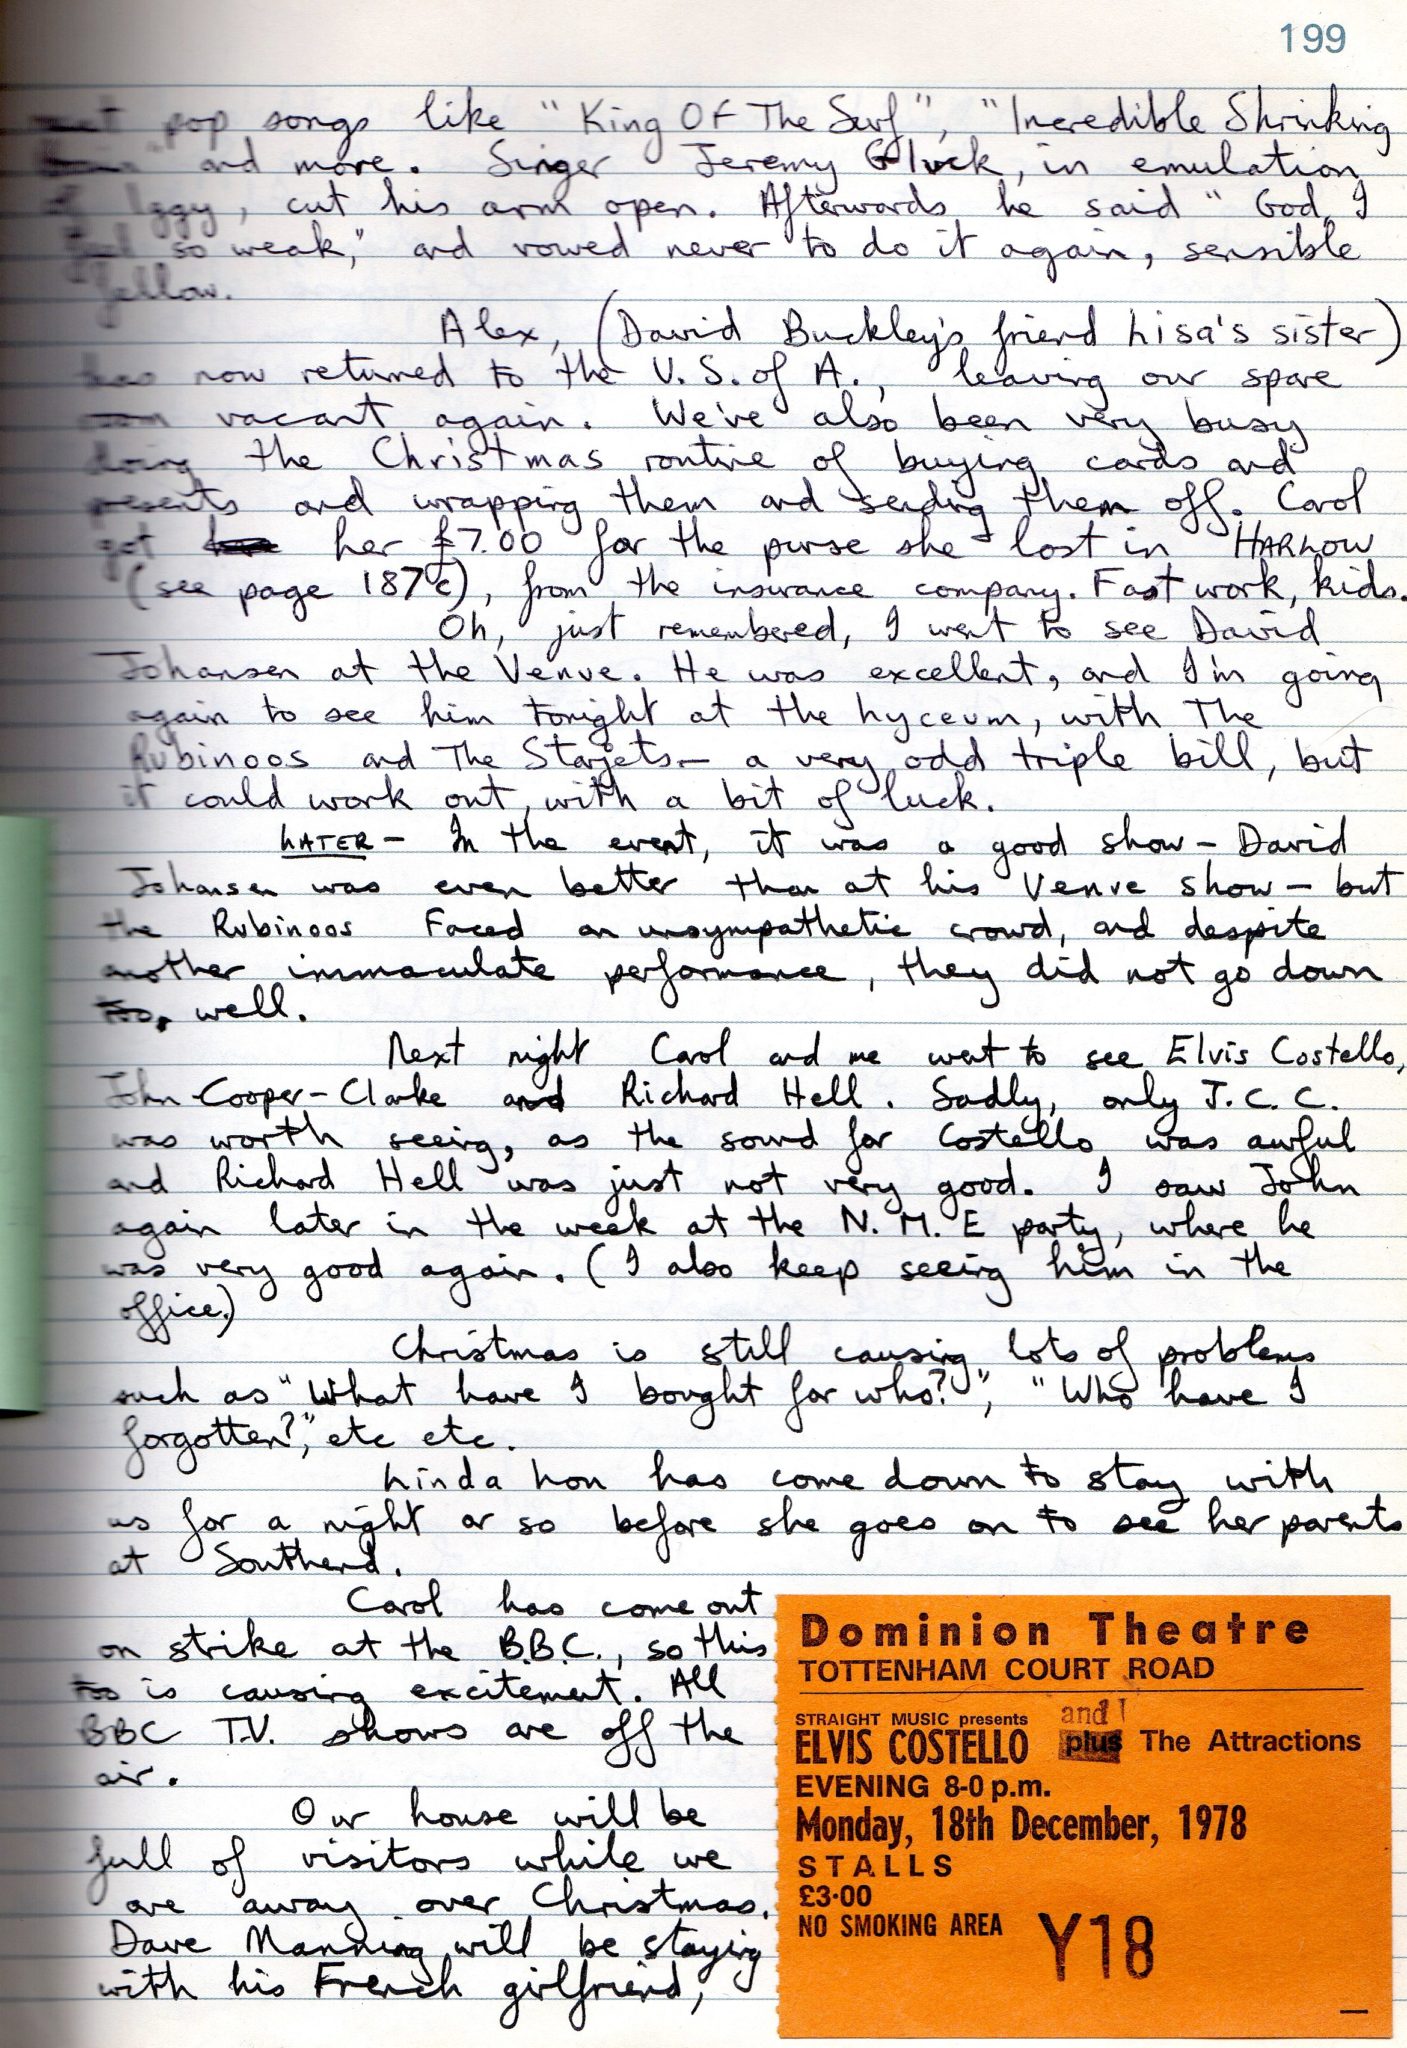 199
pop songs like "King Of The Surf", "Incredible Shrinking
and more. Singer Jeremy Gluck, in emulation
of Iggy, cut his arm open. Afterwards he said "God, I
feel so weak," and vowed never to do it again, sensible
fellow.
Alex, (David Buckley's friend Lisa's sister)
has now returned to the U.S. of A., leaving our spare
room vacant again. We've also been very busy
doing the Christmas routine of buying cards and
presents and wrapping them and sending them off. Carol
got her £7.00 for the purse she lost in HARLOW
(see page 187c), from the insurance company. Fast work, kids.
Oh, just remembered, I went to see David
Johansen at the Venue. He was excellent, and I'm going
again to see him tonight at the Lyceum, with The
Rubinoos and The Starjets - a very odd triple bill, but
it could work out, with a bit of luck.
LATER - In the event, it was a good show - David
Johansen was even better than at his Venue show - but
the Rubinoos faced an unsympathetic crowd, and despite
another immaculate performance, they did not go down
too well.
Next night Carol and me went to see Elvis Costello,
John Cooper-Clarke and Richard Hell. Sadly, only J.C.C.
was worth seeing, as the sound for Costello was awful
and Richard Hell was just not very good. I saw John
again later in the week at the N.M.E party, where he
was very good again. (I also keep seeing him in the
office.)
Christmas is still causing lots of problems
such as "What have I bought for who?", "Who have I
forgotten?", etc etc.
Linda Lou has come down to stay with
us for a night or so before she goes on to see her parents
at Southend.
Carol has come out
on strike at the B.B.C., so this
too is causing excitement. All
BBC T.V. shows are off the
air.
Our house will be
full of visitors while we
are away over Christmas.
Dave Manning will be staying
with his French girlfriend,
Dominion Theatre
TOTTENHAM COURT ROAD
STRAIGHT MUSIC presents
ELVIS COSTELLO and plus The Attractions
EVENING 8-0 p.m.
Monday, 18th December, 1978
STALLS
£3·00
NO SMOKING AREA Y18